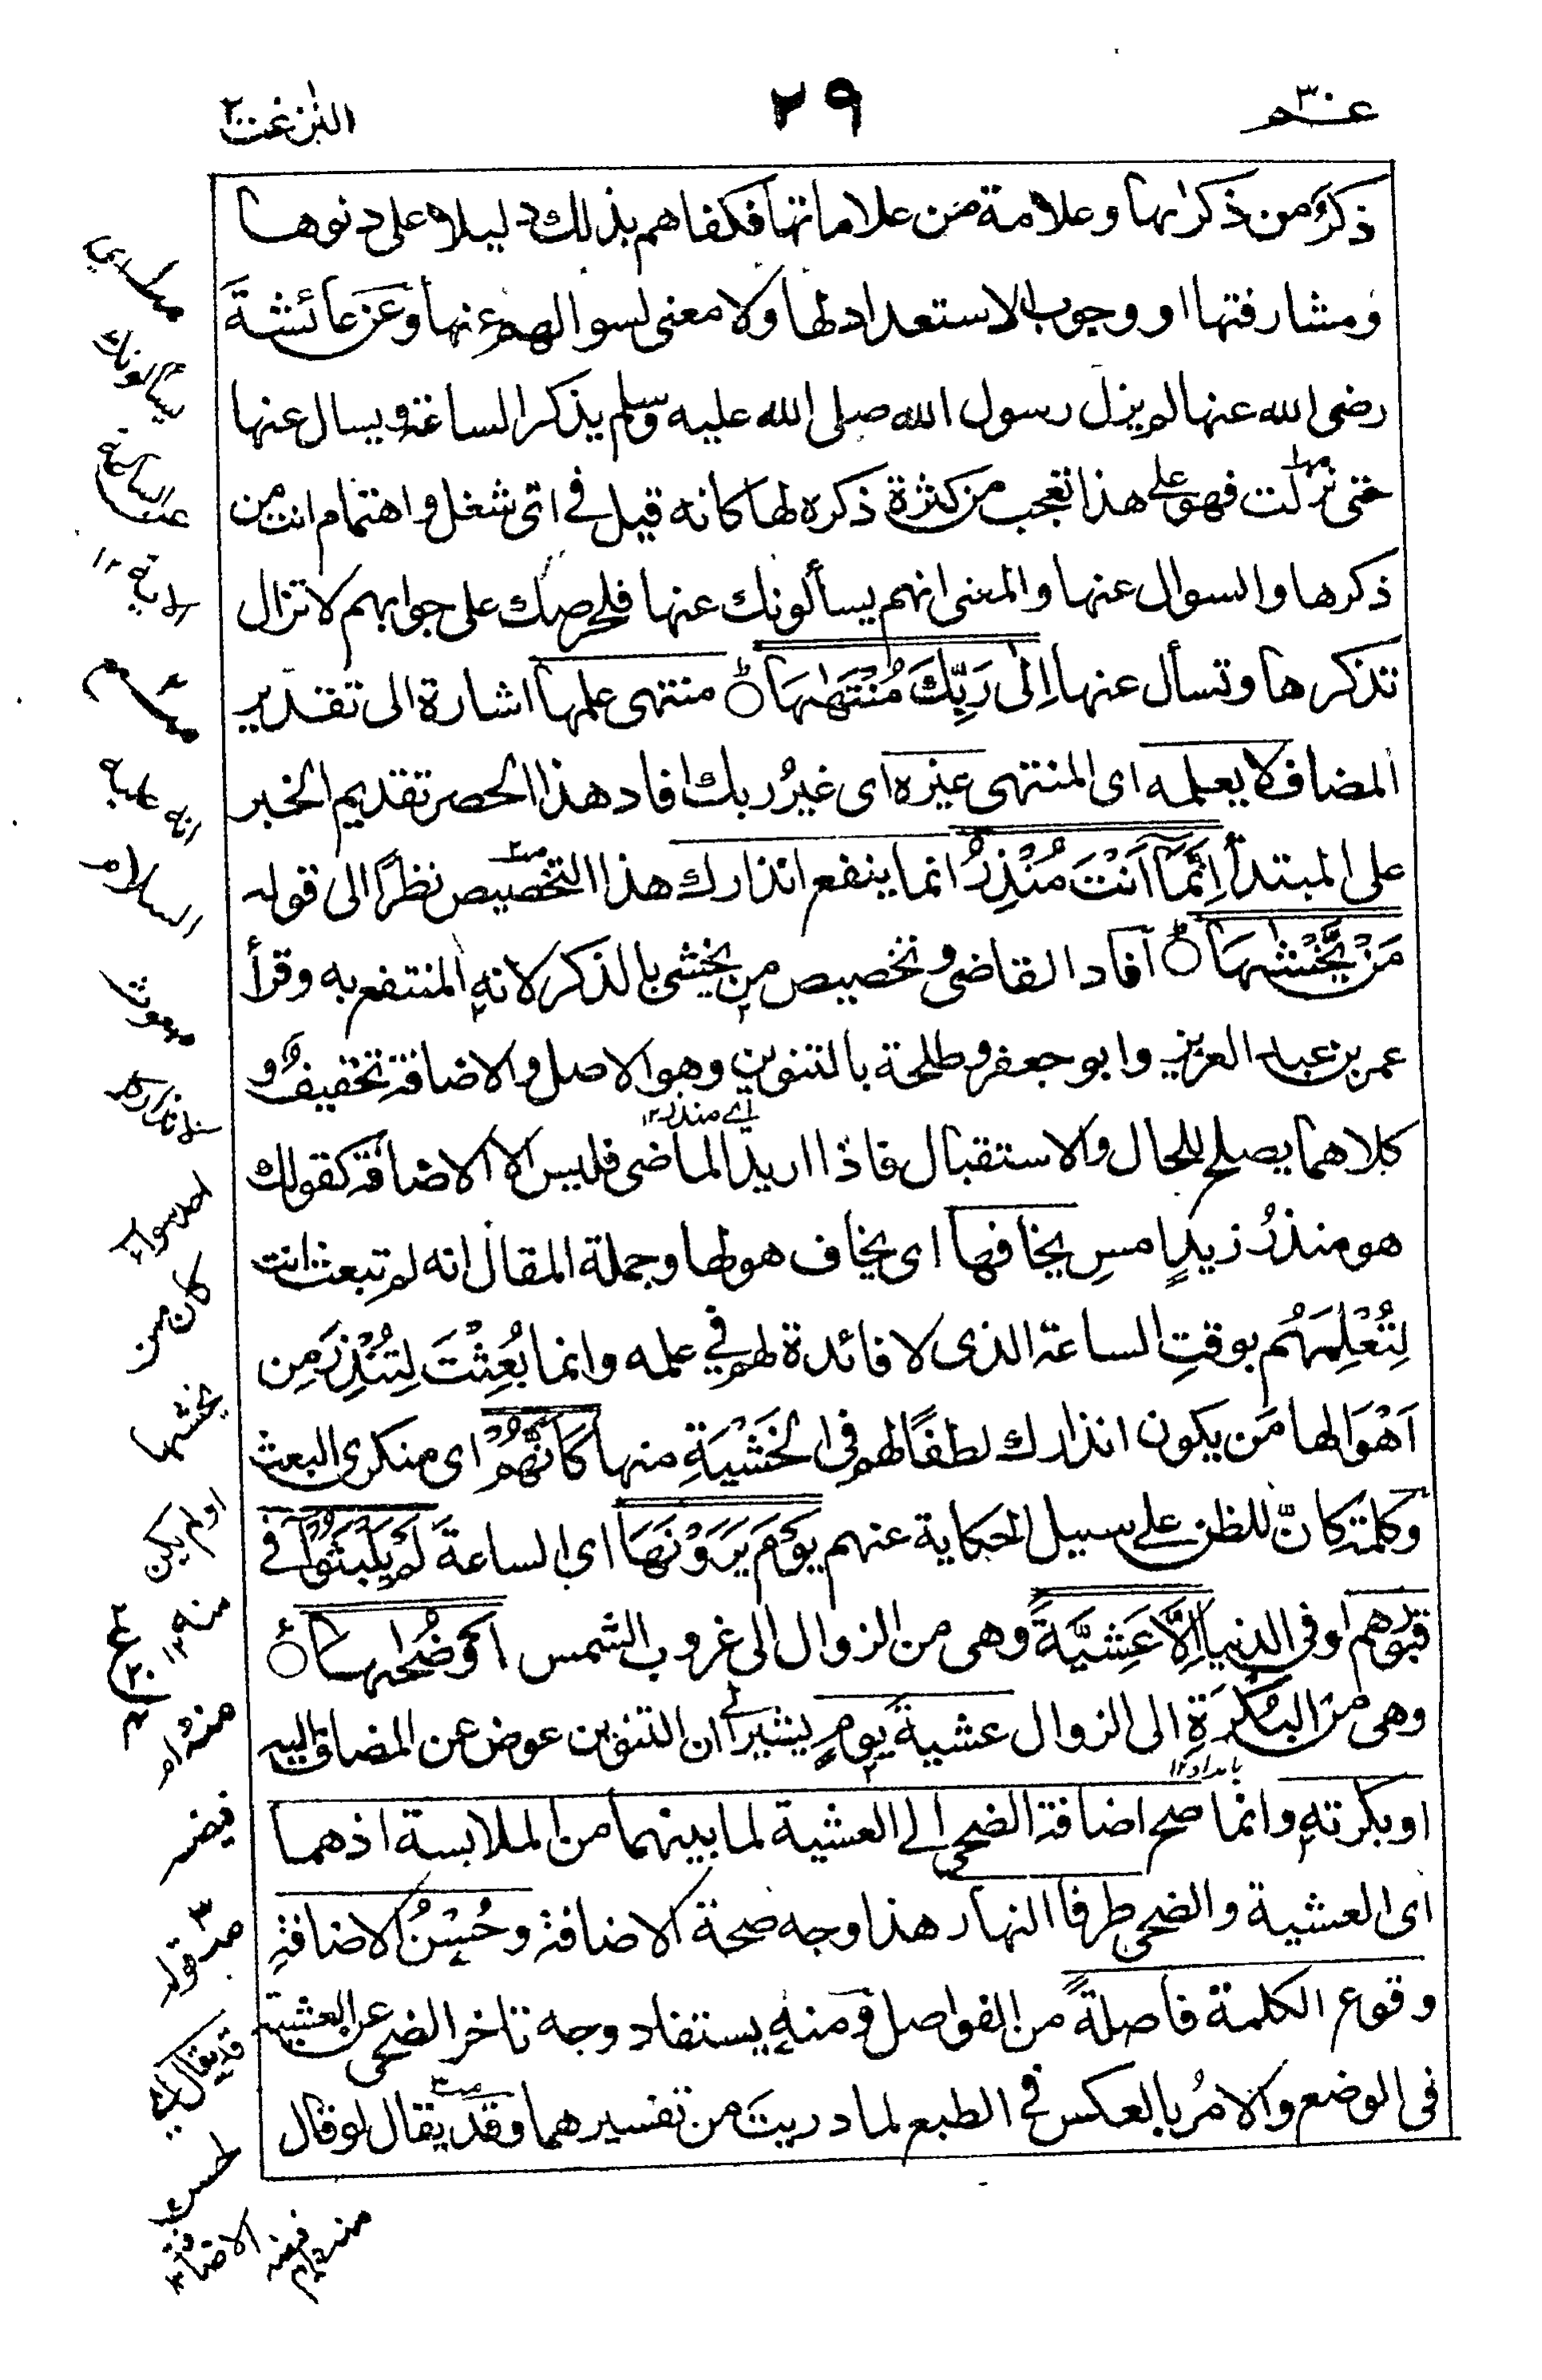 عم ٣٠
٢٩
النٰزعٰت
ذكرٌ من ذكراىها وعلامة من علاماتها فكفاهم بذلك دليلا على دنوها
ومشارفتها او وجوب الاستعداد لها ولا معنى لسوالهم عنها وعن عائشةَ
رضى الله عنها لم يزل رسول الله صلى الله عليه وسلم يذكر الساعة ويسال عنها
حتى نزلت فهو على هذا تعجب من كثرة ذكره لها كانه قيل فى اى شغل و اهتمام انت من
ذكرها والسوال عنها والمعنى انهم يسألونك عنها فلحرصك على جوابهم لا تزال
تذكرها وتسأل عنها اِلٰى رَبِّكَ مُنْتَهٰىهَا ط منتهى علمها اشارة الى تقدير
المضاف لا يعلمه اى المنتهى غيره اى غيرُ ربك افاد هذا الحصر تقديم الخبر
على المبتدأ اِنَّمَآ اَنْتَ مُنْذِرُ انما ينفع انذارك هذا التخصيص نظرًا الى قوله
مَنْ يَّخْشٰىهَا ط افاد القاضى و تخصيص من يخشى بالذكر لانه المنتفع به وقرأ
عمر بن عبد العزيز وابو جعفر وطلحة بالتنوين وهو الاصل والاضافة تخفيفٌ و
اے منذر ١٢
كلاهما يصلح للحال والاستقبال فاذا اريد الماضى فليس الا الاضافة كقولك
هو منذرُ زيدٍ امسِ يخافها اى يخاف هولها وجملة المقال انه لم تبعث انت
لِتُعْلِمَهُم بوقتِ الساعة الذى لا فائدة لهم فى علمه وانما بُعِثْتَ لِتُنْذِرَ مِن
اَهْوَالها مَن يكون انذارك لطفًا لهم فى الخَشْيَةِ منها كَاَنَّهُمْ اى منكرى البعث
وكلمة كانّ للظن على سبيل الحكاية عنهم يَوْمَ يَرَوْنَهَا اى الساعةَ لَمْ يَلْبَثُوْٓا فى
قبورهم او فى الدنيا اِلَّا عَشِيَّةً وهى من الزوال الى غروب الشمس اَوْ ضُحٰىهَا
وهى من البُكْرَةِ الى الزوال عشيةَ يومٍ يشير الى ان التنوين عوض عن المضاف اليه
بامداد ١٢
او بكرته وانما صح اضافة الضحى الى العشية لما بينهما من الملابسة اذهما
اى العشية والضحى طرفا النهار هذا وجه صحة الاضافة وحُسْنُ الاضافةِ
وقوع الكلمة فاصلةً من الفواصل و منه يستفاد وجه تاخر الضحى عن العشية
فى الوضع والامرُ بالعكس فى الطبع لما دريتَ من تفسيرهما وقد يقال لو قال
يسألونك
عن الساعة
انه عليه
السلام
مبعوث
كان من
يخشىها
او لم يكن
منه ١٢
قد يقال